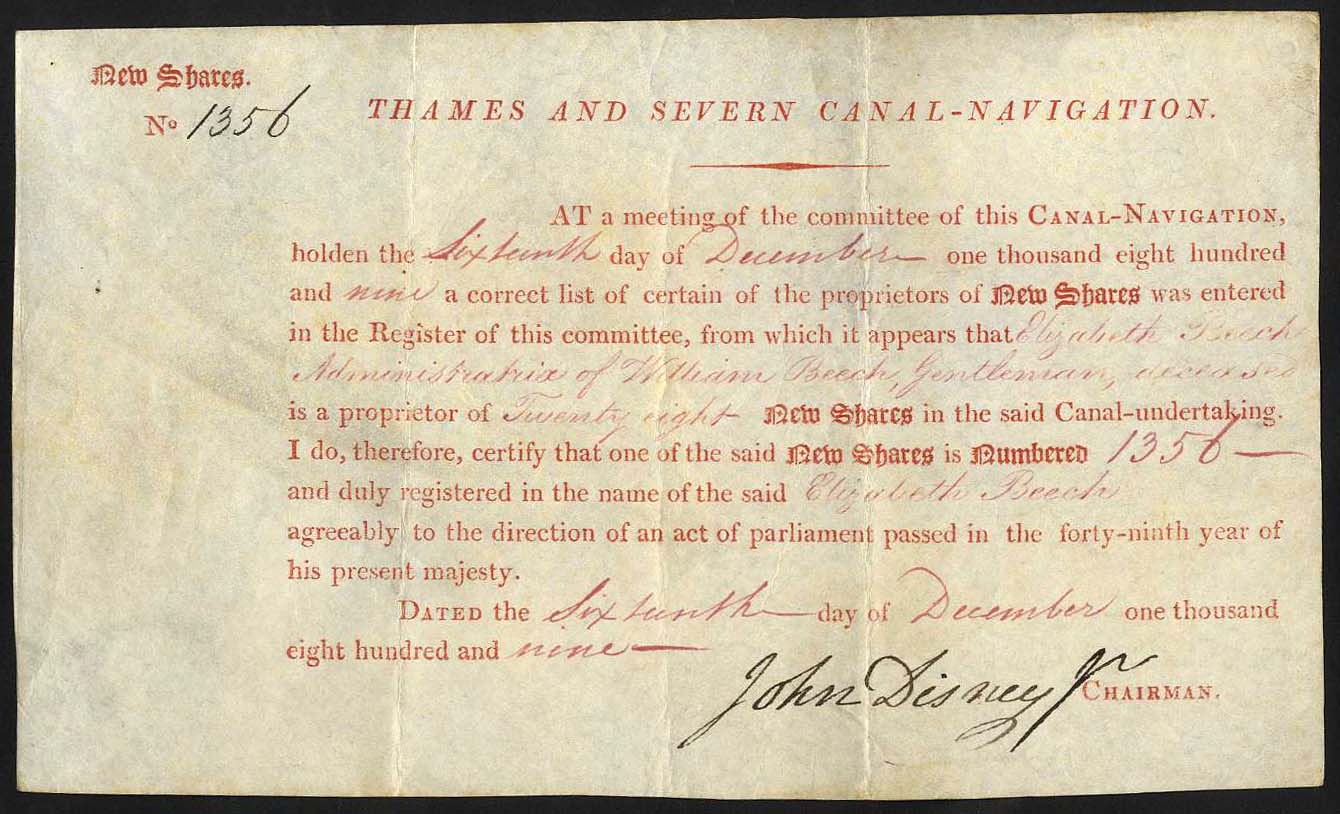 New Shares.
No 1356
THAMES AND SEVERN CANAL-NAVIGATION.
AT a meeting of the committee of this CANAL-NAVIGATION,
holden the Sixteenth day of December one thousand eight hundred
and nine a correct list of certain of the proprietors of New Shares was entered
in the Register of this committee, from which it appears that Elizabeth Beech
Administratrix of William Beech, Gentleman, deceased
is a proprietor of Twenty eight New Shares in the said Canal-undertaking.
I do, therefore, certify that one of the said New Shares is Numbered 1356 —
and duly registered in the name of the said Elizabeth Beech
agreeably to the direction of an act of parliament passed in the forty-ninth year of
his present majesty.
DATED the Sixteenth day of December one thousand
eight hundred and nine —
John Disney Jr CHAIRMAN.